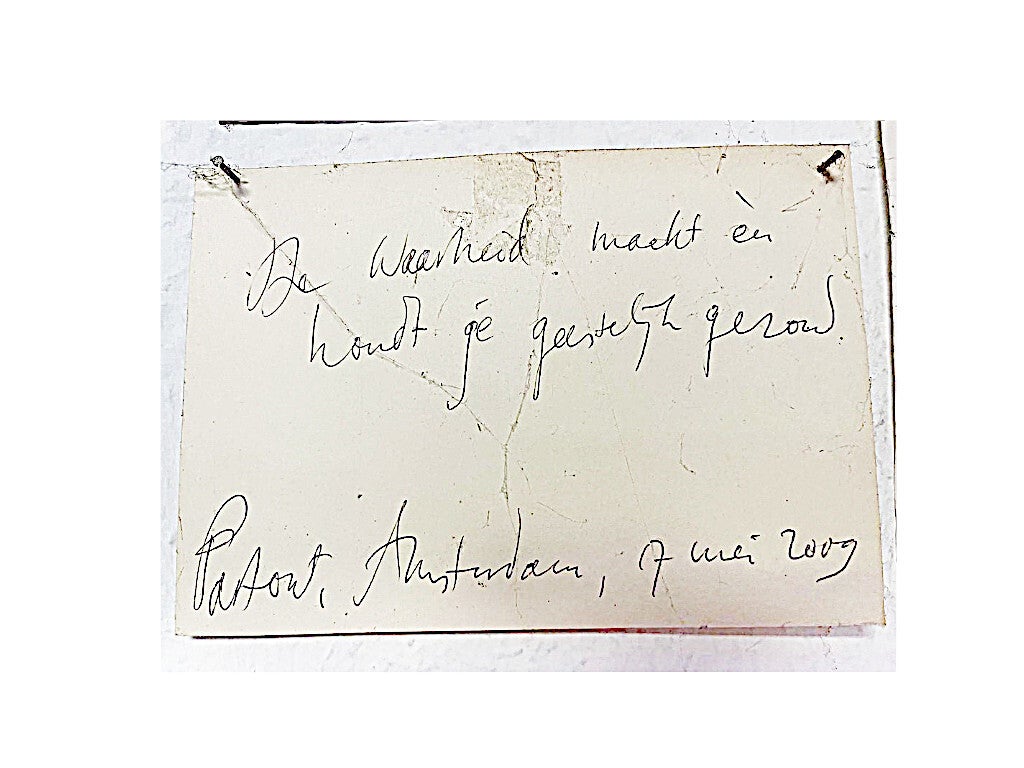 De Waarheid maakt èn
houdt je geestelijk gezond.
Partout, Amsterdam, 7 mei 2009